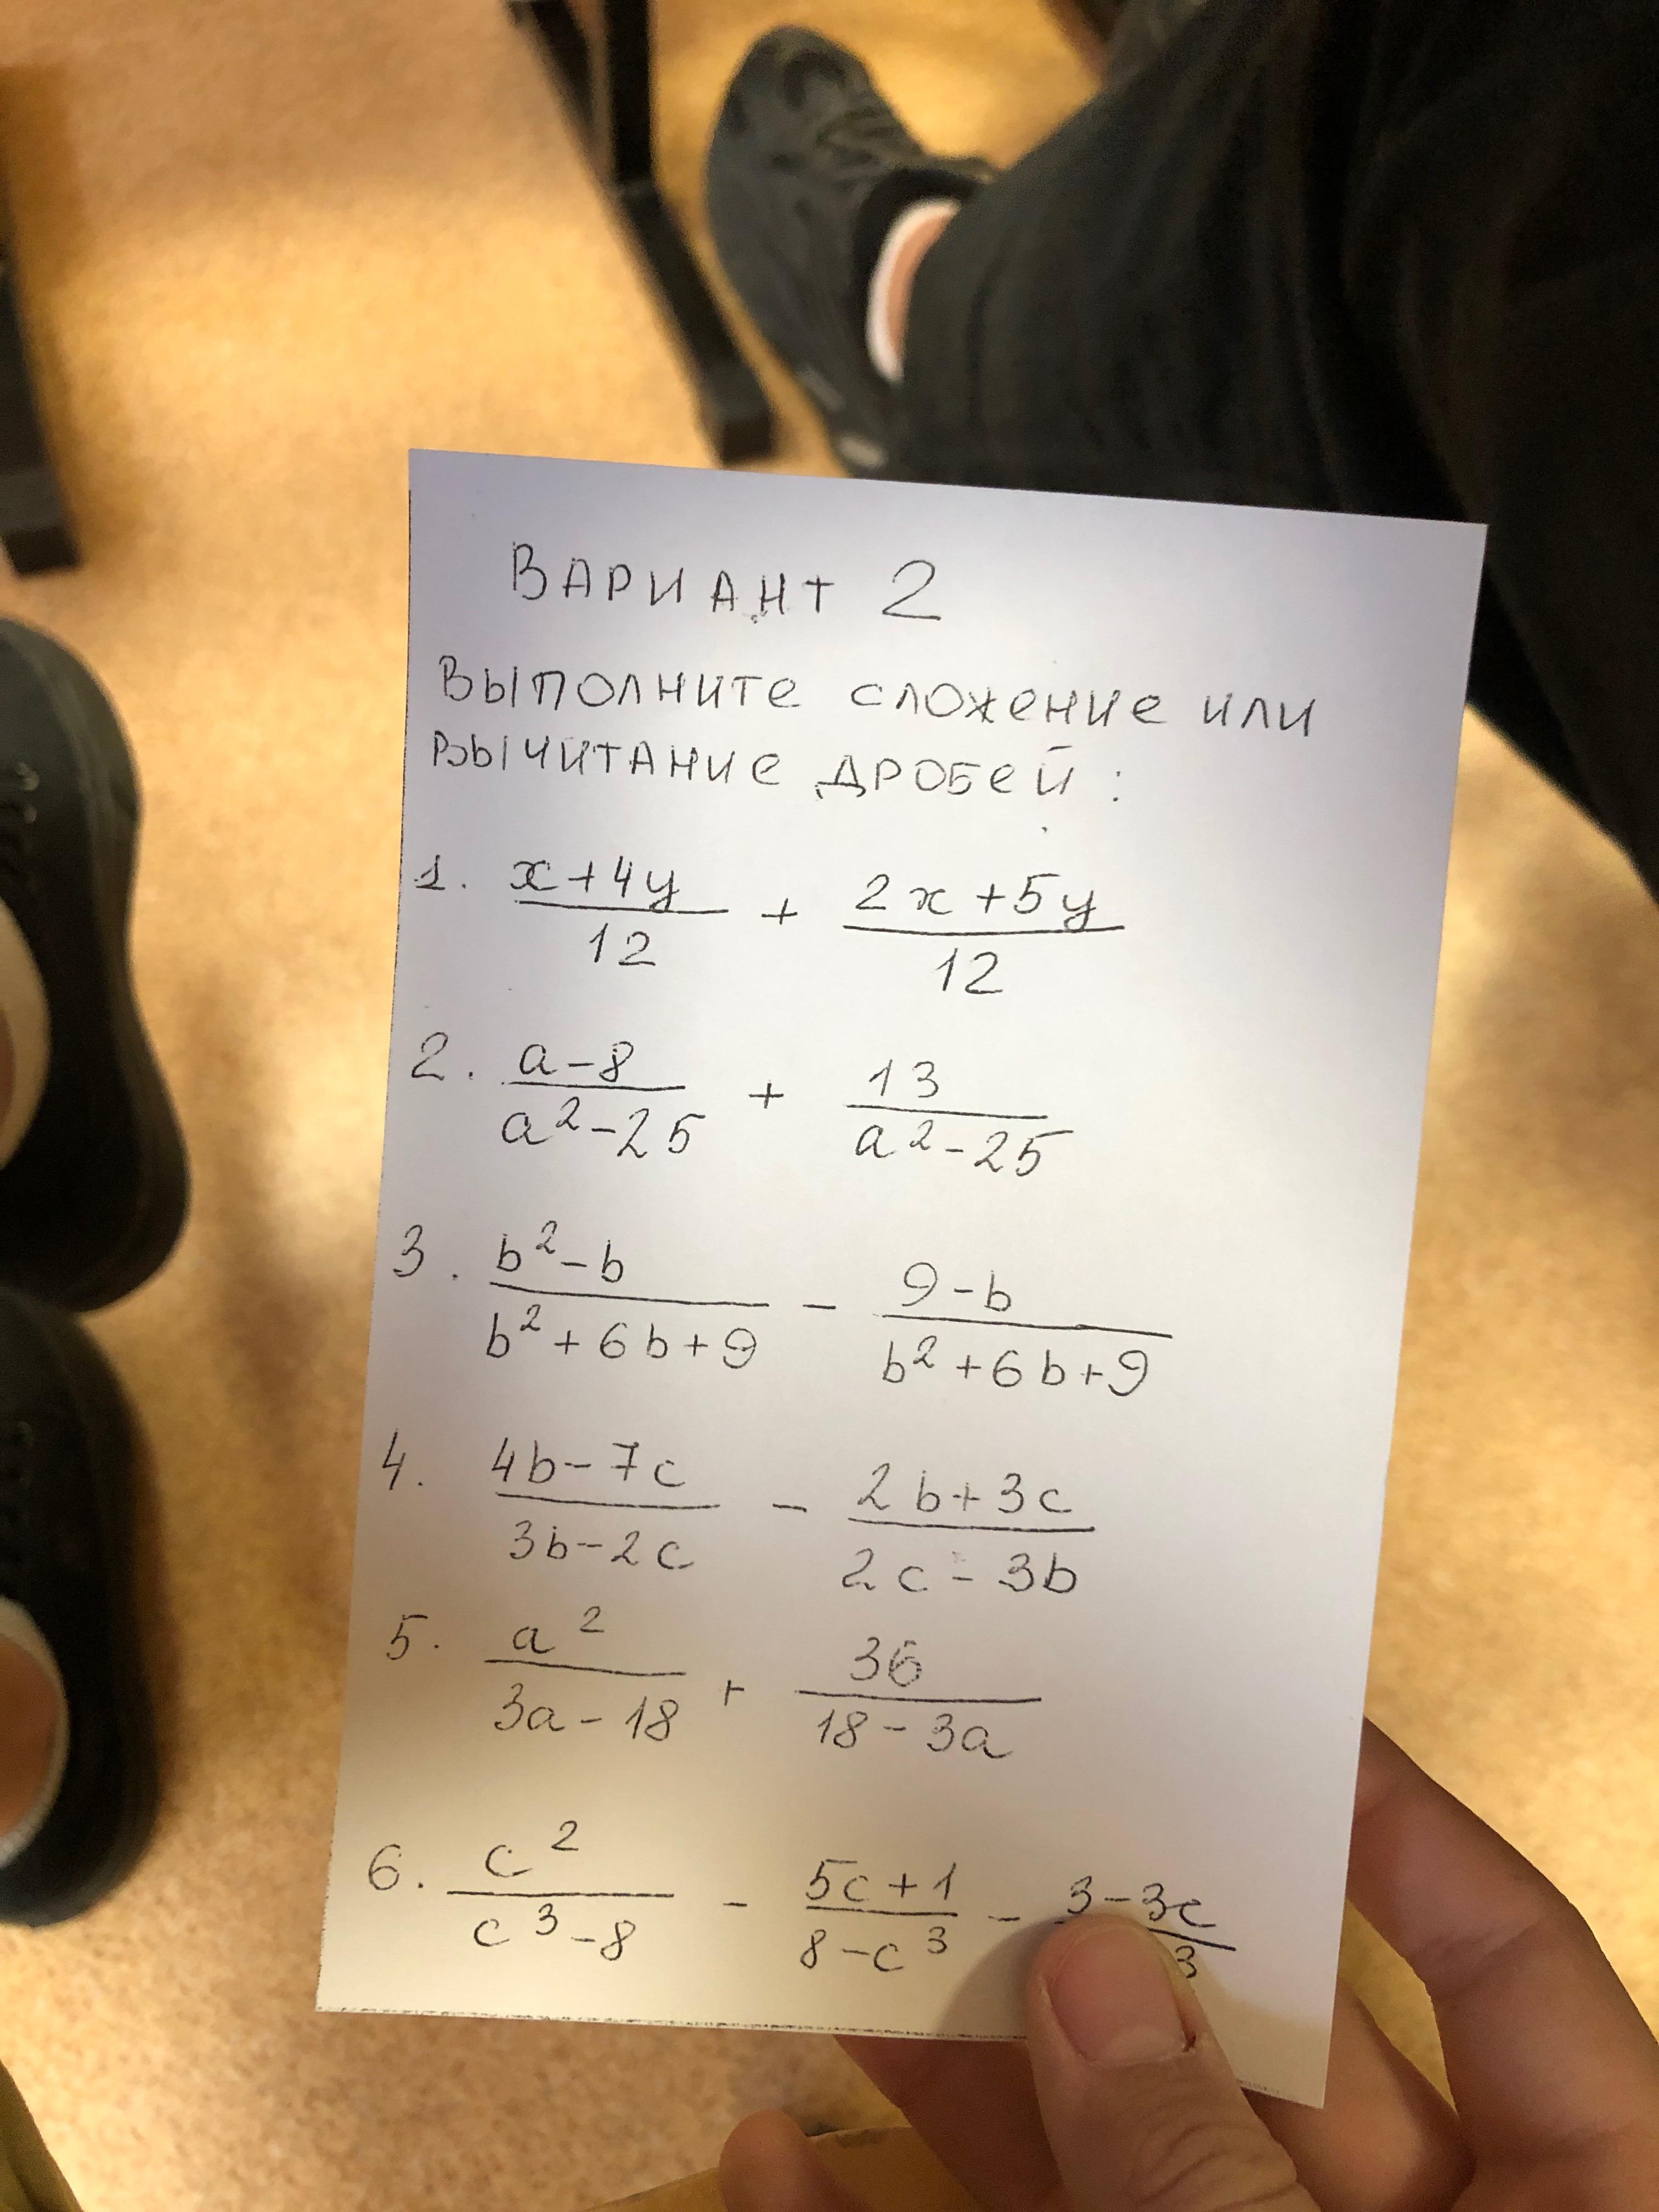 ВАРИАНТ 2
Выполните сложение или
вычитание дробей:
1. (x+4y)/12 + (2x+5y)/12
2. (a-8)/(a²-25) + 13/(a²-25)
3. (b²-b)/(b²+6b+9) - (9-b)/(b²+6b+9)
4. (4b-7c)/(3b-2c) - (2b+3c)/(2c-3b)
5. a²/(3a-18) + 36/(18-3a)
6. c²/(c³-8) - (5c+1)/(8-c³) - (3-3c)/ ³